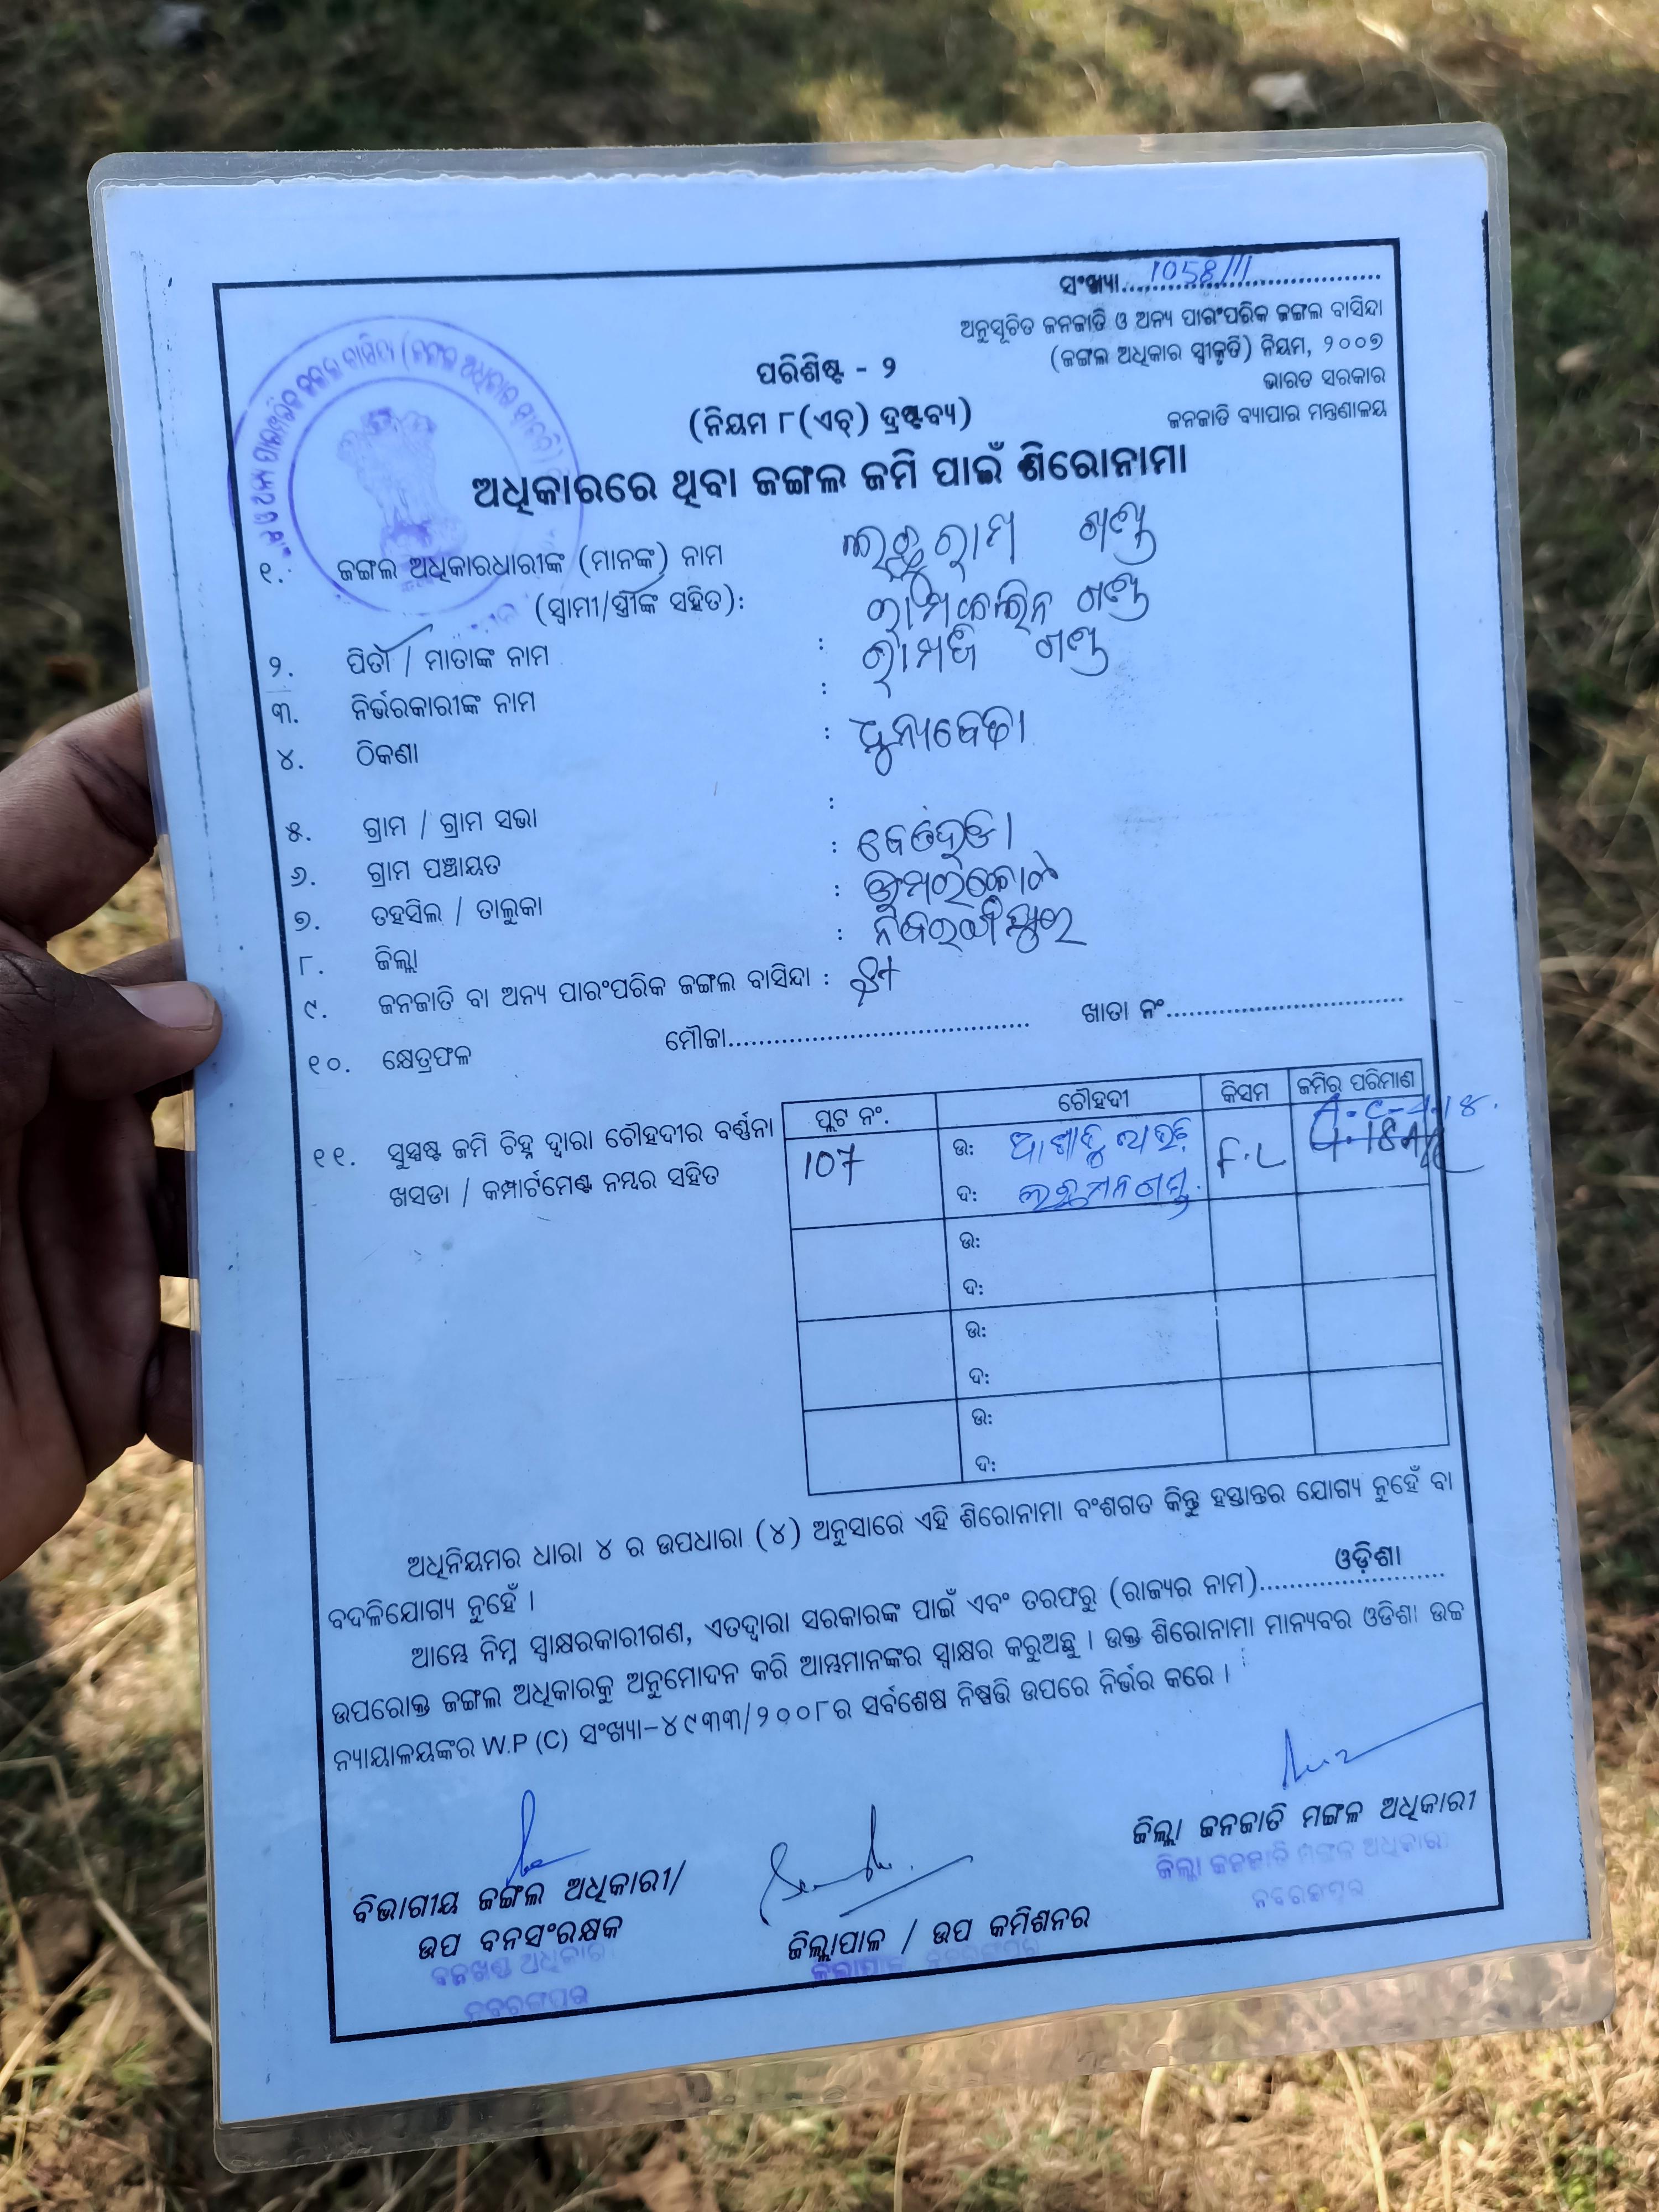 ସଂଖ୍ୟା 1058/11
ଅନୁସୂଚିତ ଜନଜାତି ଓ ଅନ୍ୟ ପାରଂପରିକ ଜଙ୍ଗଲ ବାସିନ୍ଦା
(ଜଙ୍ଗଲ ଅଧିକାର ସ୍ୱୀକୃତି) ନିୟମ, ୨୦୦୭
ଭାରତ ସରକାର
ଜନଜାତି ବ୍ୟାପାର ମନ୍ତ୍ରଣାଳୟ
ପରିଶିଷ୍ଟ - ୨
(ନିୟମ ୮(ଏଚ୍) ଦ୍ରଷ୍ଟବ୍ୟ)
ଅଧିକାରରେ ଥିବା ଜଙ୍ଗଲ ଜମି ପାଇଁ ଶିରୋନାମା
୧. ଜଙ୍ଗଲ ଅଧିକାରଧାରୀଙ୍କ (ମାନଙ୍କ) ନାମ ଗଣ୍ଡ
(ସ୍ୱାମୀ/ସ୍ତ୍ରୀଙ୍କ ସହିତ): ଗଣ୍ଡ
୨. ପିତା / ମାତାଙ୍କ ନାମ : ରାମଜି ଗଣ୍ଡ
୩. ନିର୍ଭରକାରୀଙ୍କ ନାମ :
୪. ଠିକଣା : ଧୁନ୍ୟାବେଢା
୫. ଗ୍ରାମ / ଗ୍ରାମ ସଭା :
୬. ଗ୍ରାମ ପଞ୍ଚାୟତ :
୭. ତହସିଲ / ତାଲୁକା : ଉମରକୋଟ
୮. ଜିଲ୍ଲା : ନବରଙ୍ଗପୁର
୯. ଜନଜାତି ବା ଅନ୍ୟ ପାରଂପରିକ ଜଙ୍ଗଲ ବାସିନ୍ଦା : ST
୧୦. କ୍ଷେତ୍ରଫଳ ମୌଜା ଖାତା ନଂ
୧୧. ସୁସ୍ପଷ୍ଟ ଜମି ଚିହ୍ନ ଦ୍ୱାରା ଚୌହଦୀର ବର୍ଣ୍ଣନା
ଖସଡା / କମ୍ପାର୍ଟମେଣ୍ଟ ନମ୍ବର ସହିତ
ପ୍ଲଟ ନଂ. ଚୌହଦୀ କିସମ ଜମିର ପରିମାଣ
107 ଉ: F.L
ଦ:
ଉ:
ଦ:
ଉ:
ଦ:
ଉ:
ଦ:
ଅଧିନିୟମର ଧାରା ୪ ର ଉପଧାରା (୪) ଅନୁସାରେ ଏହି ଶିରୋନାମା ବଂଶଗତ କିନ୍ତୁ ହସ୍ତାନ୍ତର ଯୋଗ୍ୟ ନୁହେଁ ବା
ବଦଳିଯୋଗ୍ୟ ନୁହେଁ ।
ଆମ୍ଭେ ନିମ୍ନ ସ୍ୱାକ୍ଷରକାରୀଗଣ, ଏତଦ୍ୱାରା ସରକାରଙ୍କ ପାଇଁ ଏବଂ ତରଫରୁ (ରାଜ୍ୟର ନାମ) ଓଡ଼ିଶା
ଉପରୋକ୍ତ ଜଙ୍ଗଲ ଅଧିକାରକୁ ଅନୁମୋଦନ କରି ଆମ୍ଭମାନଙ୍କର ସ୍ୱାକ୍ଷର କରୁଅଛୁ । ଉକ୍ତ ଶିରୋନାମା ମାନ୍ୟବର ଓଡିଶା ଉଚ୍ଚ
ନ୍ୟାୟାଳୟଙ୍କର W.P (C) ସଂଖ୍ୟା-୪୯୩୩/୨୦୦୮ର ସର୍ବଶେଷ ନିଷ୍ପତ୍ତି ଉପରେ ନିର୍ଭର କରେ ।
ବିଭାଗୀୟ ଜଙ୍ଗଲ ଅଧିକାରୀ/
ଉପ ବନସଂରକ୍ଷକ
ବନଖଣ୍ଡ ଅଧିକାରୀ
ନବରଙ୍ଗପୁର
ଜିଲ୍ଲାପାଳ / ଉପ କମିଶନର
ଜିଲ୍ଲା ଜନଜାତି ମଙ୍ଗଳ ଅଧିକାରୀ
ଜିଲ୍ଲା ଜନଜାତି ମଙ୍ଗଳ ଅଧିକାରୀ
ନବରଙ୍ଗପୁର